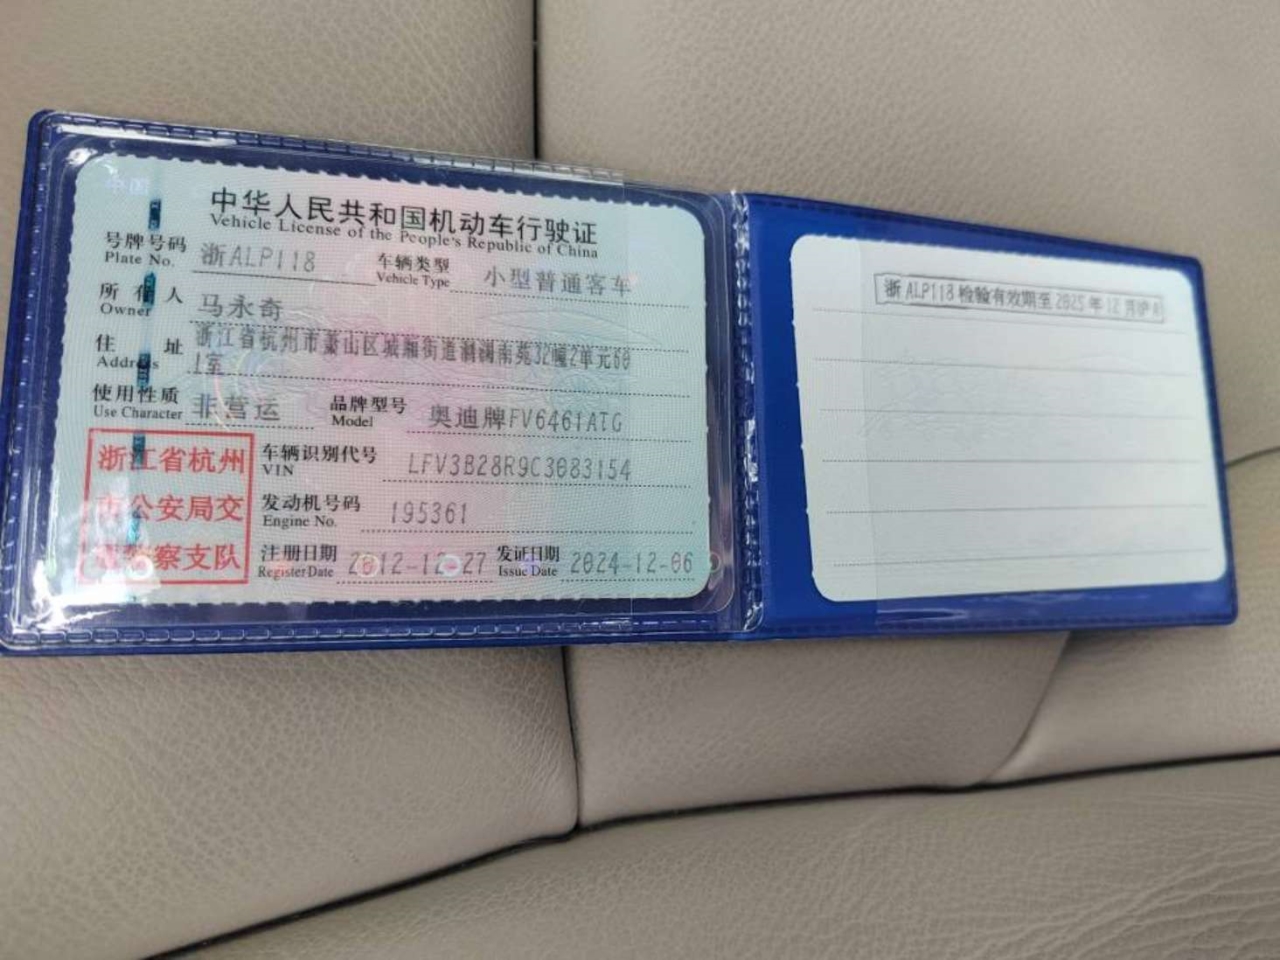 中国
中华人民共和国机动车行驶证
Vehicle License of the People's Republic of China
号牌号码 浙ALP118 车辆类型 小型普通客车
Plate No. Vehicle Type
所有人 马永奇
Owner
住址 浙江省杭州市萧山区城厢街道潇湘南苑32幢2单元60
Address 1室
使用性质 非营运 品牌型号 奥迪牌FV6461ATG
Use Character Model
浙江省杭州
市公安局交
通警察支队
车辆识别代号 LFV3B28R9C3083154
VIN
发动机号码 195361
Engine No.
注册日期 2012-12-27 发证日期 2024-12-06
Register Date Issue Date
浙ALP118检验有效期至2025年12月浙A